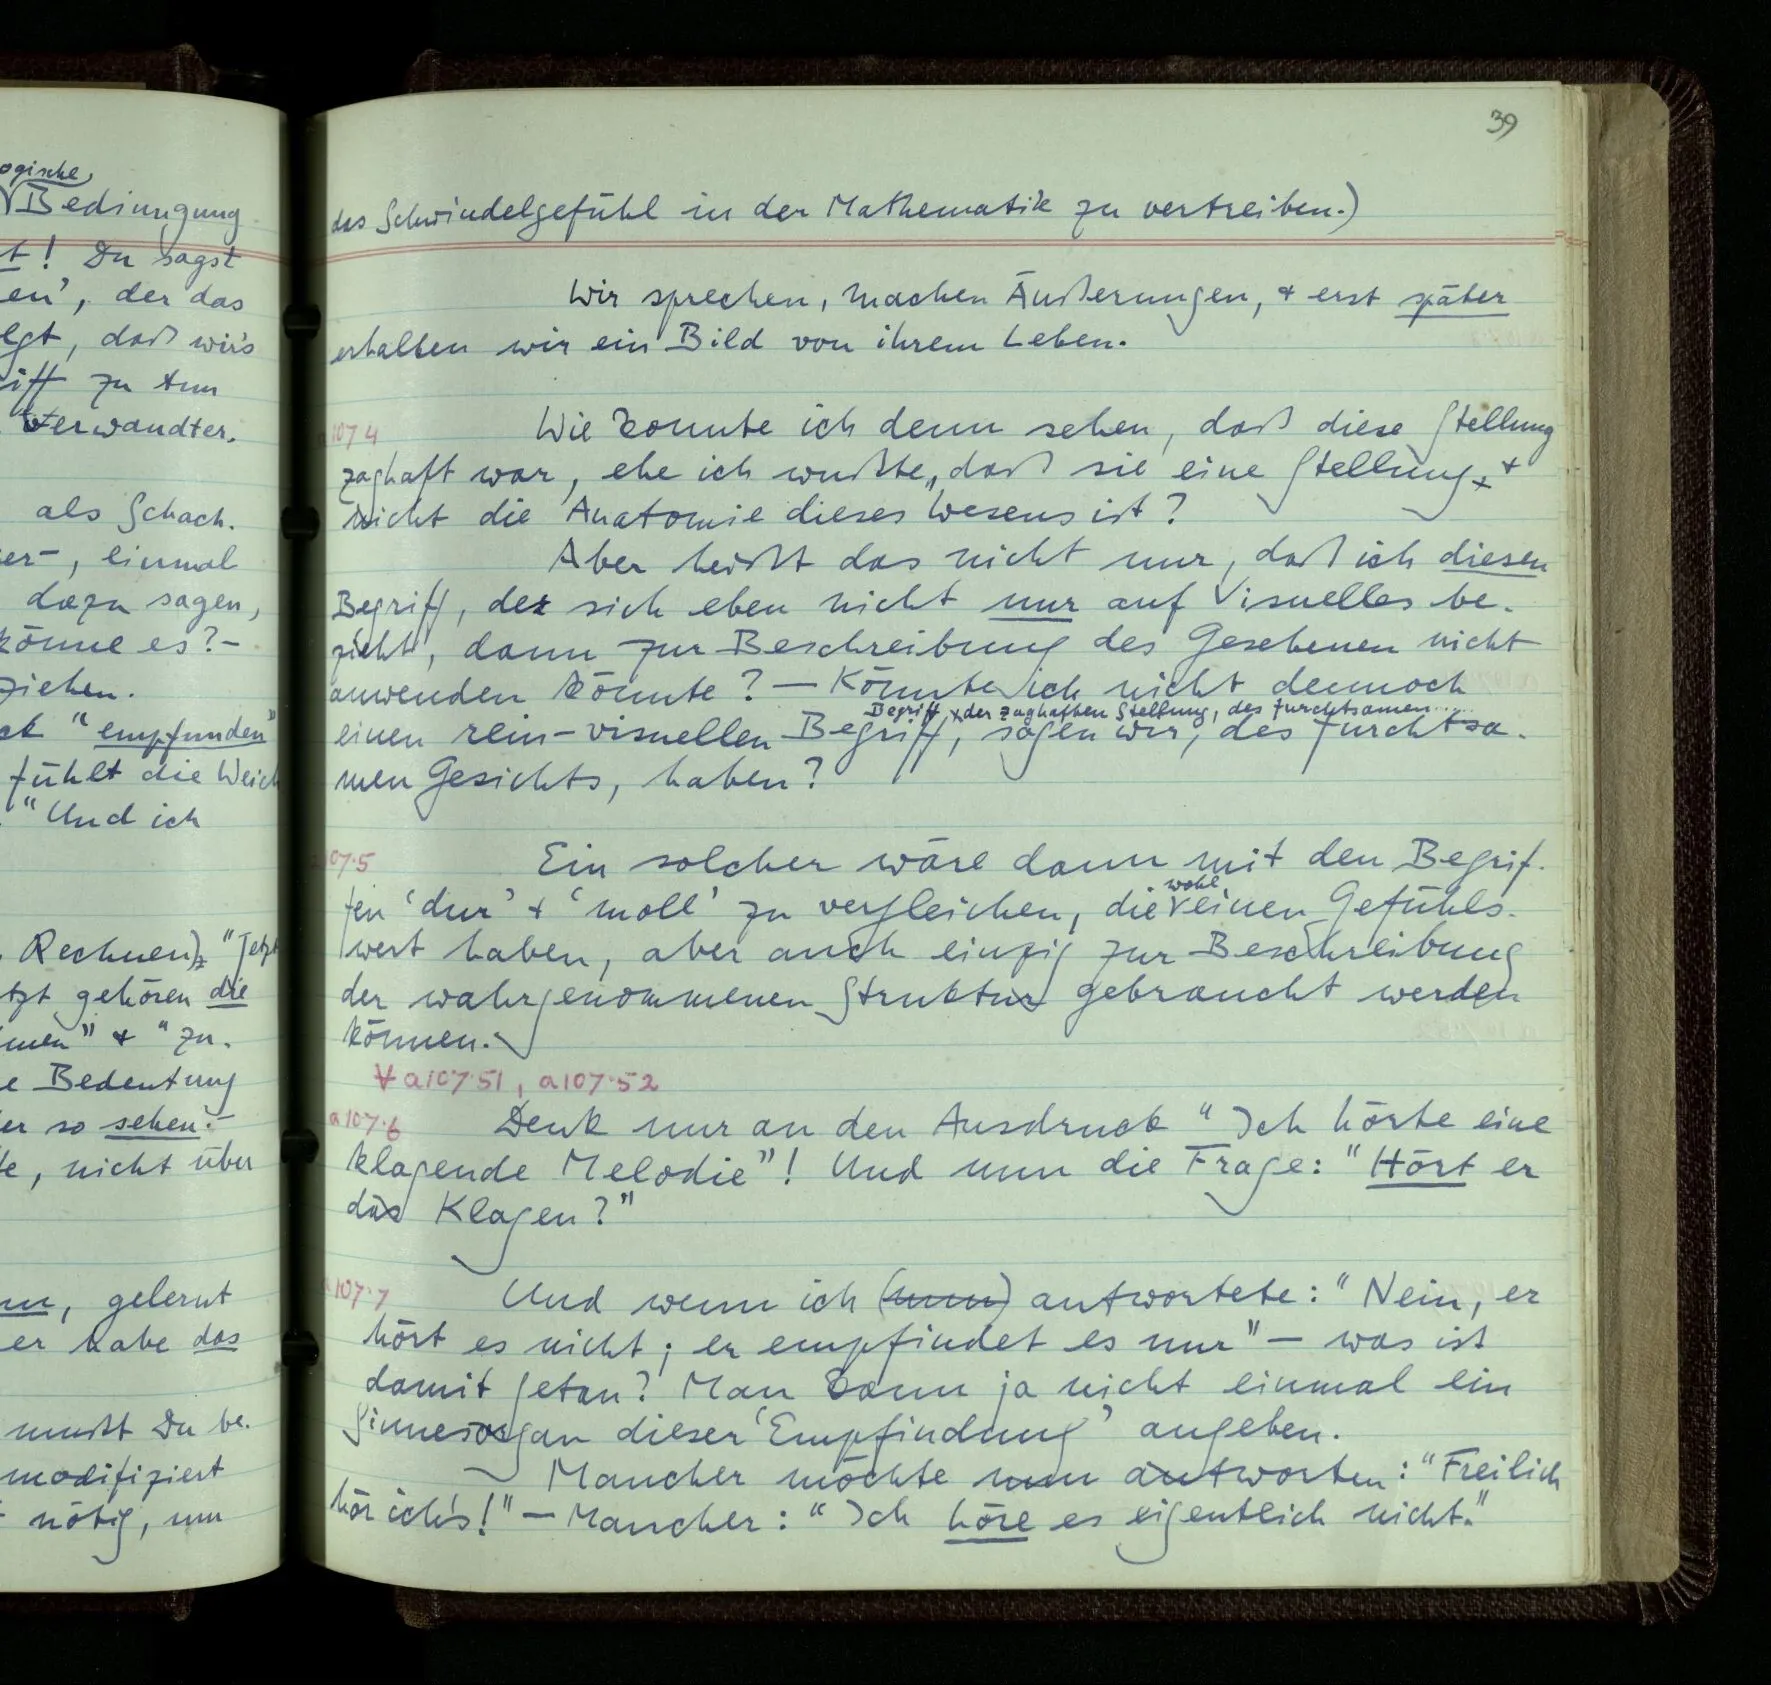 ogische
Bedingung
t! Du sagst
en', der das
lgt, daß wir's
iff zu tun
Verwandter.
als Schach.
er-, einmal
dazu sagen,
könne es?-
ziehen.
ck "empfunden"
fühlt die Weich
"Und ich
Rechnen), "Jetzt
tzt gehören die
men" & "zu.
e Bedeutung
er so sehen.-
te, nicht über
nn, gelernt
er habe das
mußt Du be.
modifiziert
nötig, um
39
das Schwindelgefühl in der Mathematik zu vertreiben.)
Wir sprechen, machen Äußerungen, & erst später
erhalten wir ein Bild von ihrem Leben.
107.4
Wie konnte ich denn sehen, daß diese Stellung
zaghaft war, ehe ich wußte, daß sie eine Stellung, &
nicht die Anatomie dieses Wesens ist?
Aber heißt das nicht nur, daß ich diesen
Begriff, der sich eben nicht nur auf Visuelles be-
zieht, dann zur Beschreibung des Gesehenen nicht
anwenden könnte? — Könnte ich nicht dennoch
Begriff, der zaghaften Stellung, des furchtsamen .....
einen rein-visuellen Begriff, sagen wir, des furchtsa-
men Gesichts, haben?
107.5
Ein solcher wäre dann mit den Begrif-
wohl
fen 'dur' & 'moll' zu vergleichen, die einen Gefühls-
wert haben, aber auch einzig zur Beschreibung
der wahrgenommenen Struktur gebraucht werden
können.
∀ a107.51, a107.52
a107.6
Denk nur an den Ausdruck "Ich hörte eine
klagende Melodie"! Und nun die Frage: "Hört er
das Klagen?"
107.7
Und wenn ich (nun) antwortete: "Nein, er
hört es nicht; er empfindet es nur" — was ist
damit getan? Man kann ja nicht einmal ein
Sinnesorgan dieser 'Empfindung' angeben.
Mancher möchte nun antworten: "Freilich
hör ich's!" — Mancher: "Ich höre es eigentlich nicht."